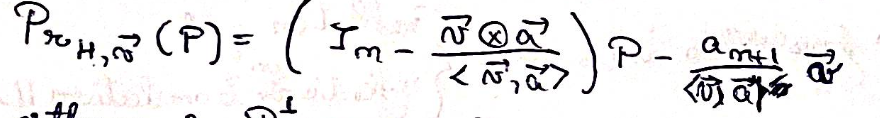 Pr_{H, \vec{v}} (P) = ( I_n - \frac{\vec{v} \otimes \vec{a}}{<\vec{v}, \vec{a}>} ) P - \frac{a_{n+1}}{<\vec{v}, \vec{a}>} \vec{v}